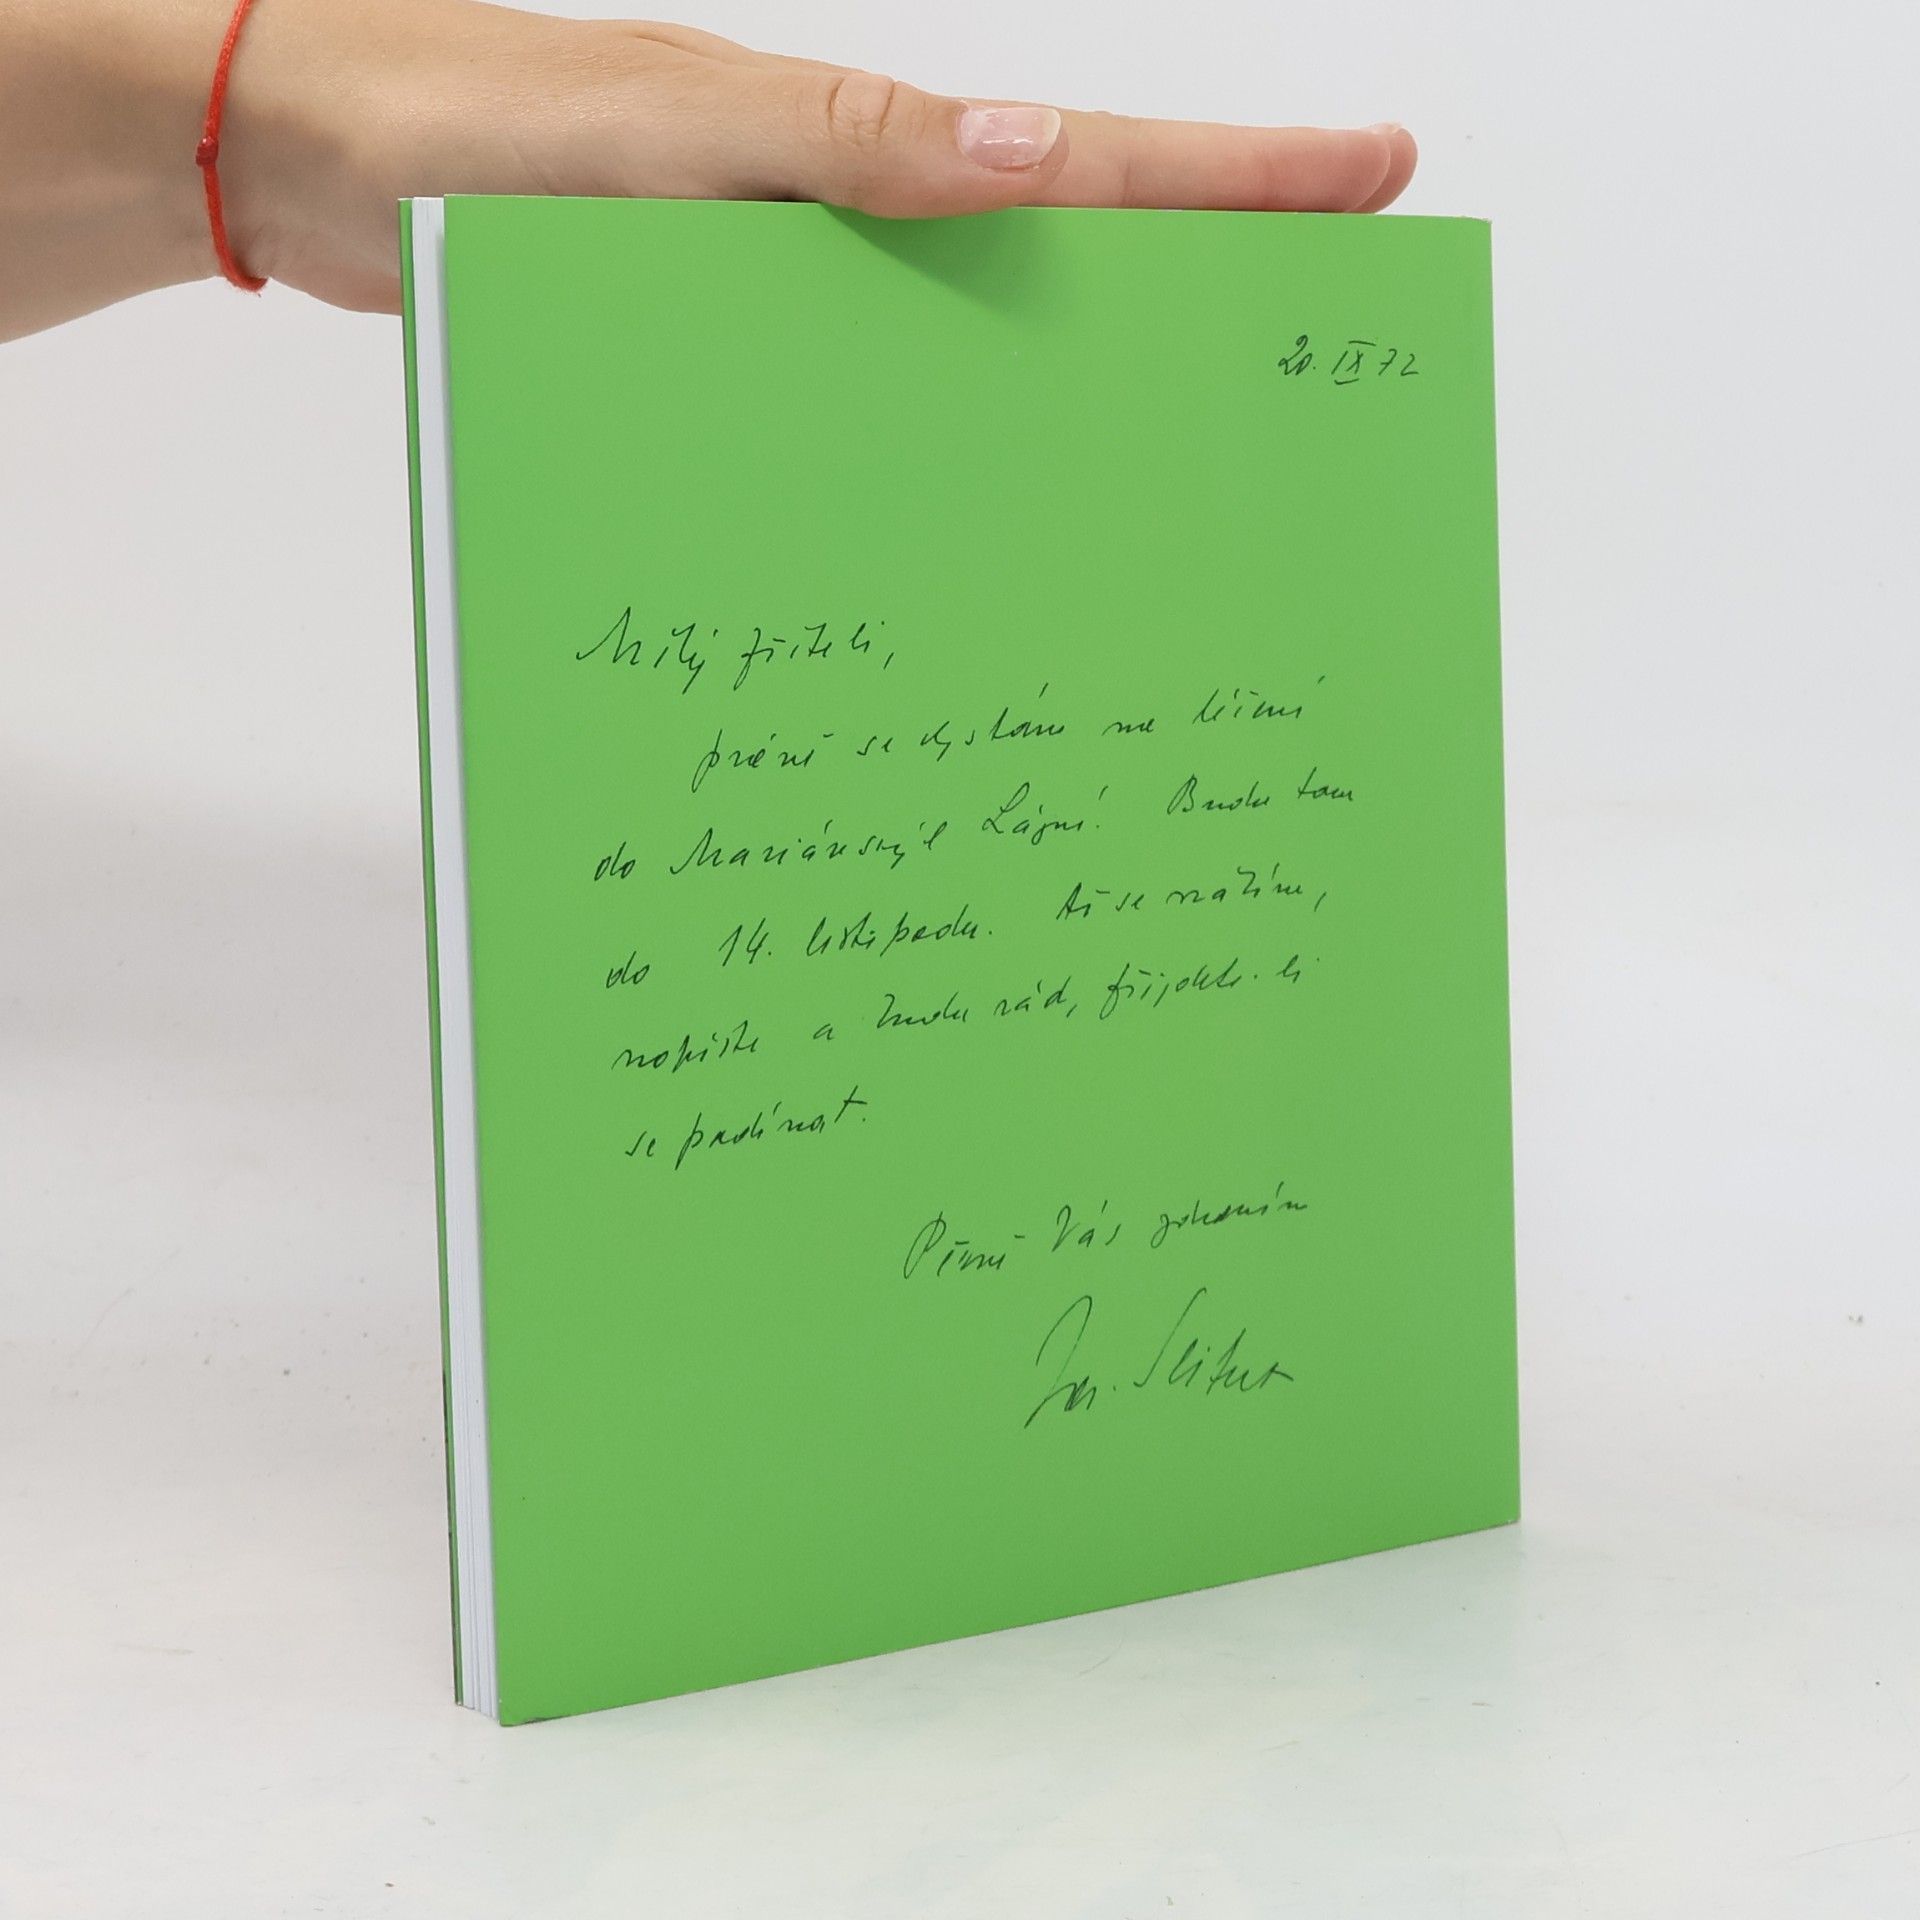 20. IX 72
Milý příteli,
právě se chystám na léčení
do Mariánských Lázní. Budu tam
do 14. listopadu. Až se vrátím,
napíšu a budu rád, přijdete-li
se podívat.
Pěkně Vás pozdravuji
Jar. Seifert